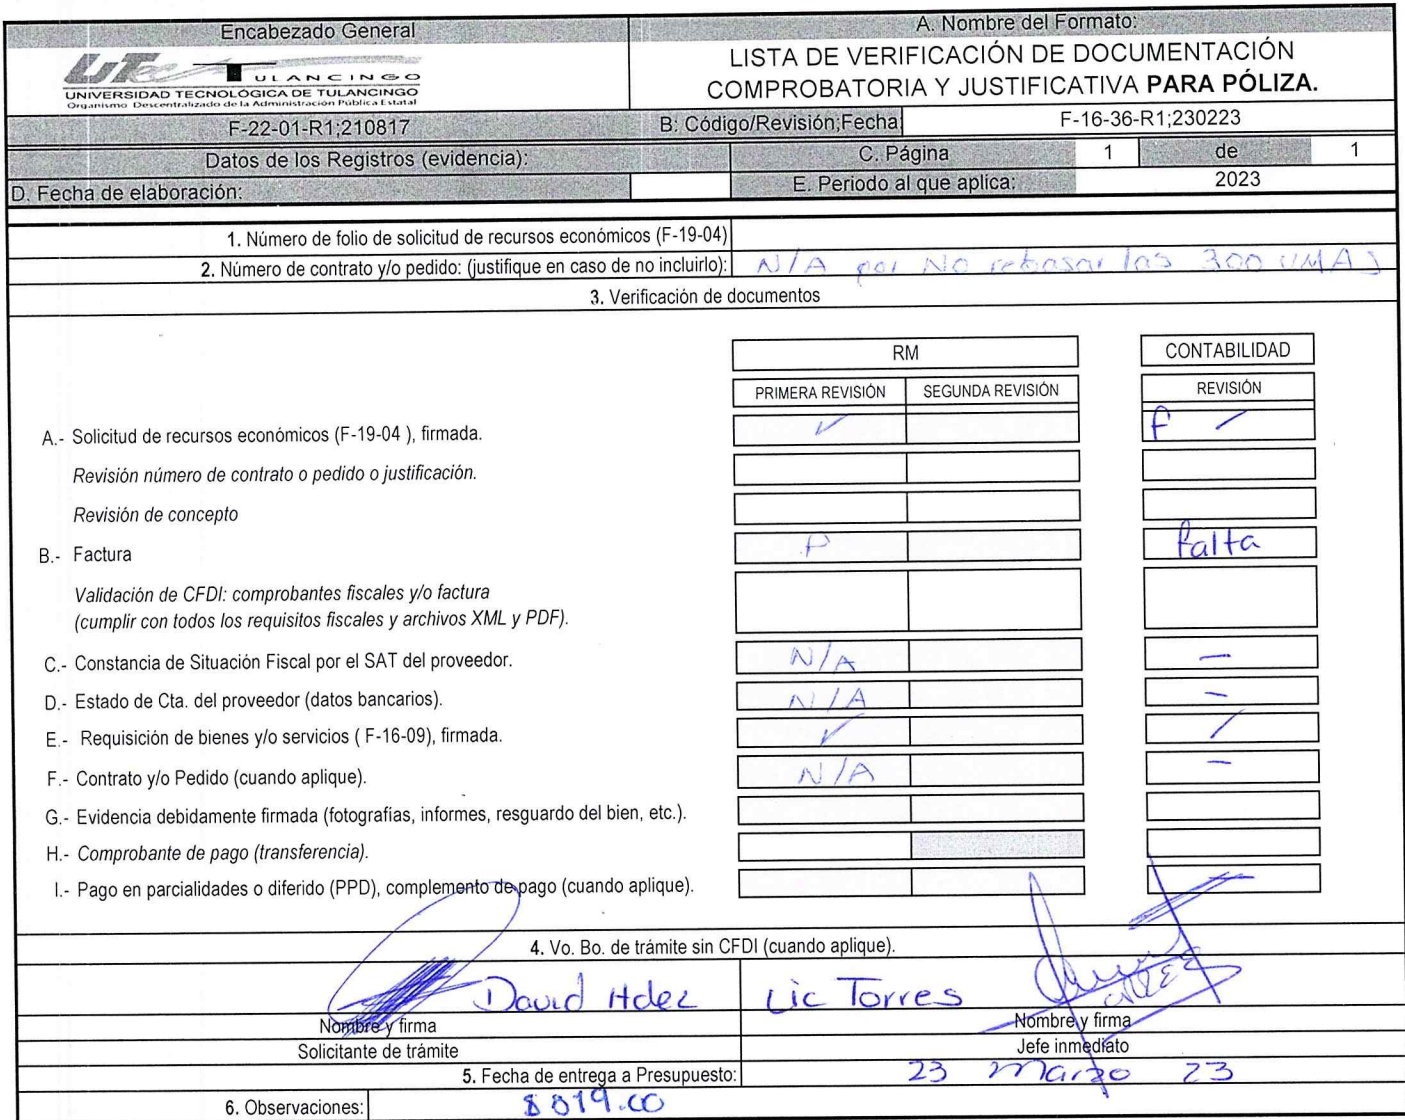 Encabezado General
A. Nombre del Formato:
UTec TULANCINGO
UNIVERSIDAD TECNOLÓGICA DE TULANCINGO
Organismo Descentralizado de la Administración Pública Estatal
LISTA DE VERIFICACIÓN DE DOCUMENTACIÓN
COMPROBATORIA Y JUSTIFICATIVA PARA PÓLIZA.
F-22-01-R1;210817
B: Código/Revisión;Fecha:
F-16-36-R1;230223
Datos de los Registros (evidencia):
C. Página 1 de 1
D. Fecha de elaboración:
E. Periodo al que aplica: 2023
1. Número de folio de solicitud de recursos económicos (F-19-04)
2. Número de contrato y/o pedido: (justifique en caso de no incluirlo): N/A por No rebasar las 300 UMAs
3. Verificación de documentos
RM CONTABILIDAD
PRIMERA REVISIÓN SEGUNDA REVISIÓN REVISIÓN
A.- Solicitud de recursos económicos (F-19-04 ), firmada. ✓ F /
Revisión número de contrato o pedido o justificación.
Revisión de concepto
B.- Factura P falta
Validación de CFDI: comprobantes fiscales y/o factura
(cumplir con todos los requisitos fiscales y archivos XML y PDF).
C.- Constancia de Situación Fiscal por el SAT del proveedor. N/A –
D.- Estado de Cta. del proveedor (datos bancarios). N/A –
E.- Requisición de bienes y/o servicios ( F-16-09), firmada. ✓ /
F.- Contrato y/o Pedido (cuando aplique). N/A –
G.- Evidencia debidamente firmada (fotografías, informes, resguardo del bien, etc.).
H.- Comprobante de pago (transferencia).
I.- Pago en parcialidades o diferido (PPD), complemento de pago (cuando aplique). –
4. Vo. Bo. de trámite sin CFDI (cuando aplique).
David Hdez Lic Torres
Nombre y firma Nombre y firma
Solicitante de trámite Jefe inmediato
5. Fecha de entrega a Presupuesto: 23 Marzo 23
6. Observaciones: $ 819.00